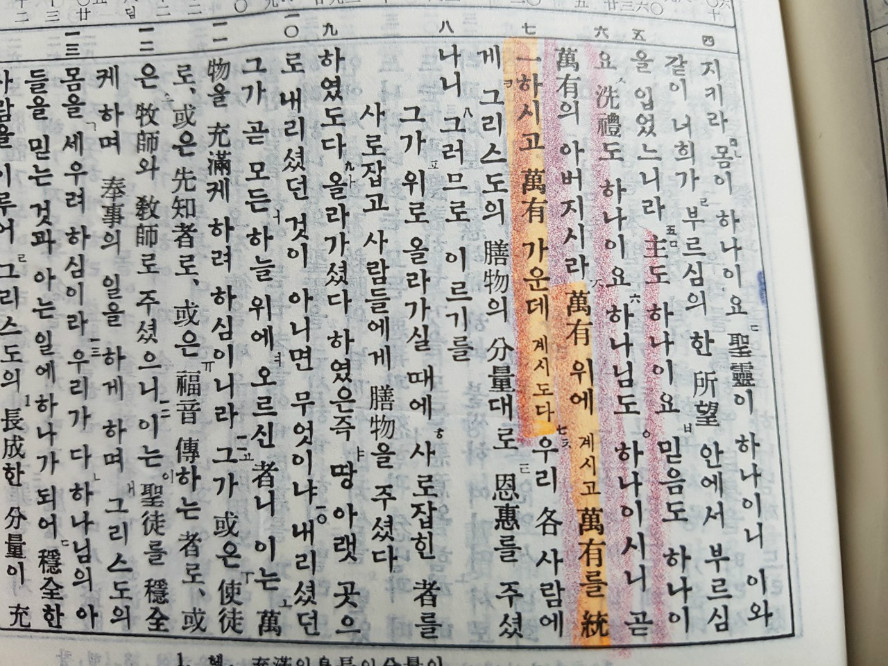 四 지키라 몸이 하나이요 聖靈이 하나이니 이와
같이 너희가 부르심의 한 所望 안에서 부르심
五 을 입었느니라 主도 하나이요 믿음도 하나이
六 요 洗禮도 하나이요 하나님도 하나이시니 곧
萬有의 아버지시라 萬有 위에 계시고 萬有를 統
七 一하시고 萬有 가운데 계시도다 우리 各 사람에
게 그리스도의 膳物의 分量대로 恩惠를 주셨
八 나니 그러므로 이르기를
그가 위로 올라가실 때에 사로잡힌 者를
사로잡고 사람들에게 膳物을 주셨다
九 하였도다 올라가셨다 하였은즉 땅 아랫 곳으
一〇 로 내리셨던 것이 아니면 무엇이냐 내리셨던
그가 곧 모든 하늘 위에 오르신 者니 이는 萬
一一 物을 充滿케 하려 하심이니라 그가 或은 使徒
로, 或은 先知者로, 或은 福音 傳하는 者로, 或
一二 은 牧師와 敎師로 주셨으니 이는 聖徒를 穩全
케 하며 奉事의 일을 하게 하며 그리스도의
一三 몸을 세우려 하심이라 우리가 다 하나님의 아
들을 믿는 것과 아는 일에 하나가 되어 穩全한
사람을 이루어 그리스도의 長成한 分量이 充